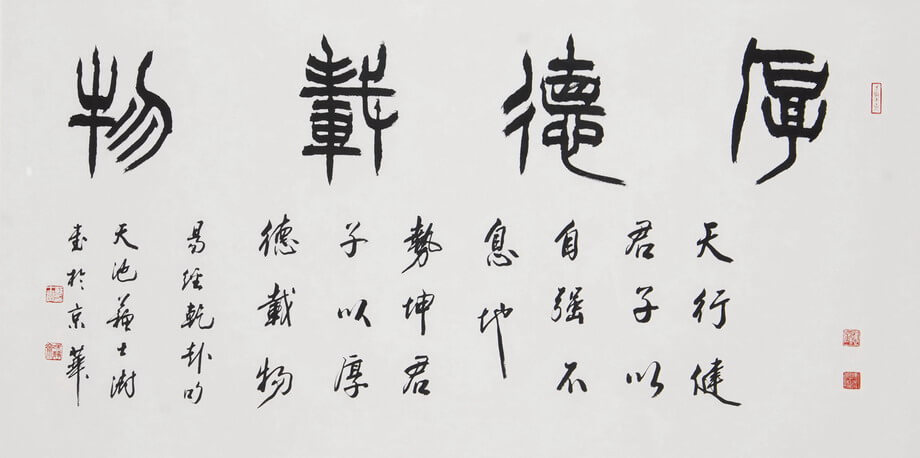 厚德载物
天行健
君子以
自强不
息地
勢坤君
子以厚
德載物
易经乾卦句
天池蘇士澍
書於京華